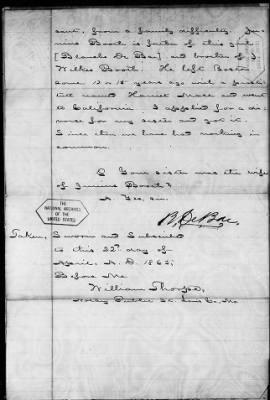 sent, from a family difficulty. Ju-
nius Booth is father of this girl
[Blanche De Bar] and brother of J.
Wilkes Booth. He left Boston
some 12 or 15 years ago with a
called named Harriet Mace and went
to California. I applied for a di-
vorce for my sister and got it.
Since then we have had nothing in
common.
Q Your sister was the wife
of Junius Booth?
A Yes, sir.
B. De Bar.
THE
NATIONAL ARCHIVES
OF THE
UNITED STATES
Taken, Sworn and Subscribed
to this 22d day of
April, A.D. 1865;
Before Me
William Thorpe,
Notary Public St. Louis Co., Mo